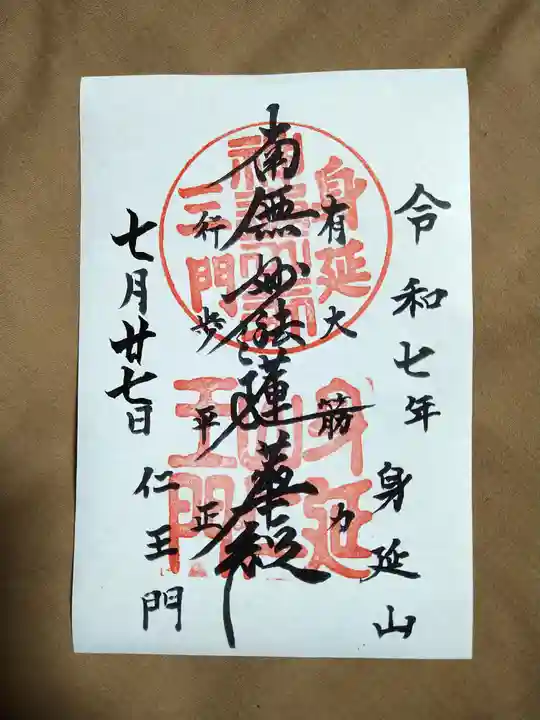 令和七年
身延山
有大筋力
南無妙法蓮華経
行歩平正
七月廿七日
仁王門
身延
三門
身延山
王門